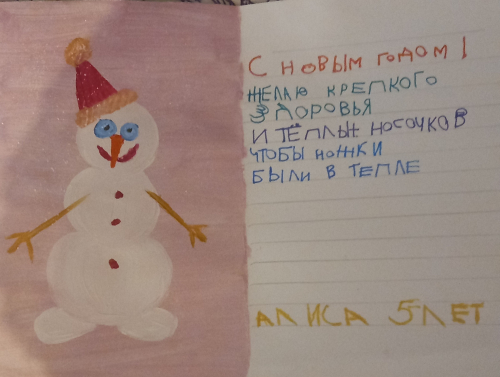 С НОВЫМ ГОДОМ!
ЖЕЛАЮ КРЕПКОГО
ЗДОРОВЬЯ
И ТЁПЛЫХ НОСОЧКОВ
ЧТОБЫ НОЖКИ
БЫЛИ В ТЕПЛЕ
АЛИСА 5 ЛЕТ